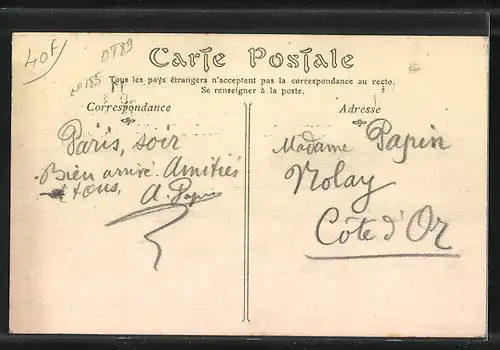 40F
DT89
nº 185
Carte Postale
Tous les pays étrangers n'acceptent pas la correspondance au recto.
Se renseigner à la poste.
Correspondance
Paris, soir
Bien arrivé. Amitiés
tous,
A. Papin
Adresse
Madame Papin
Nolay
Côte d'Or